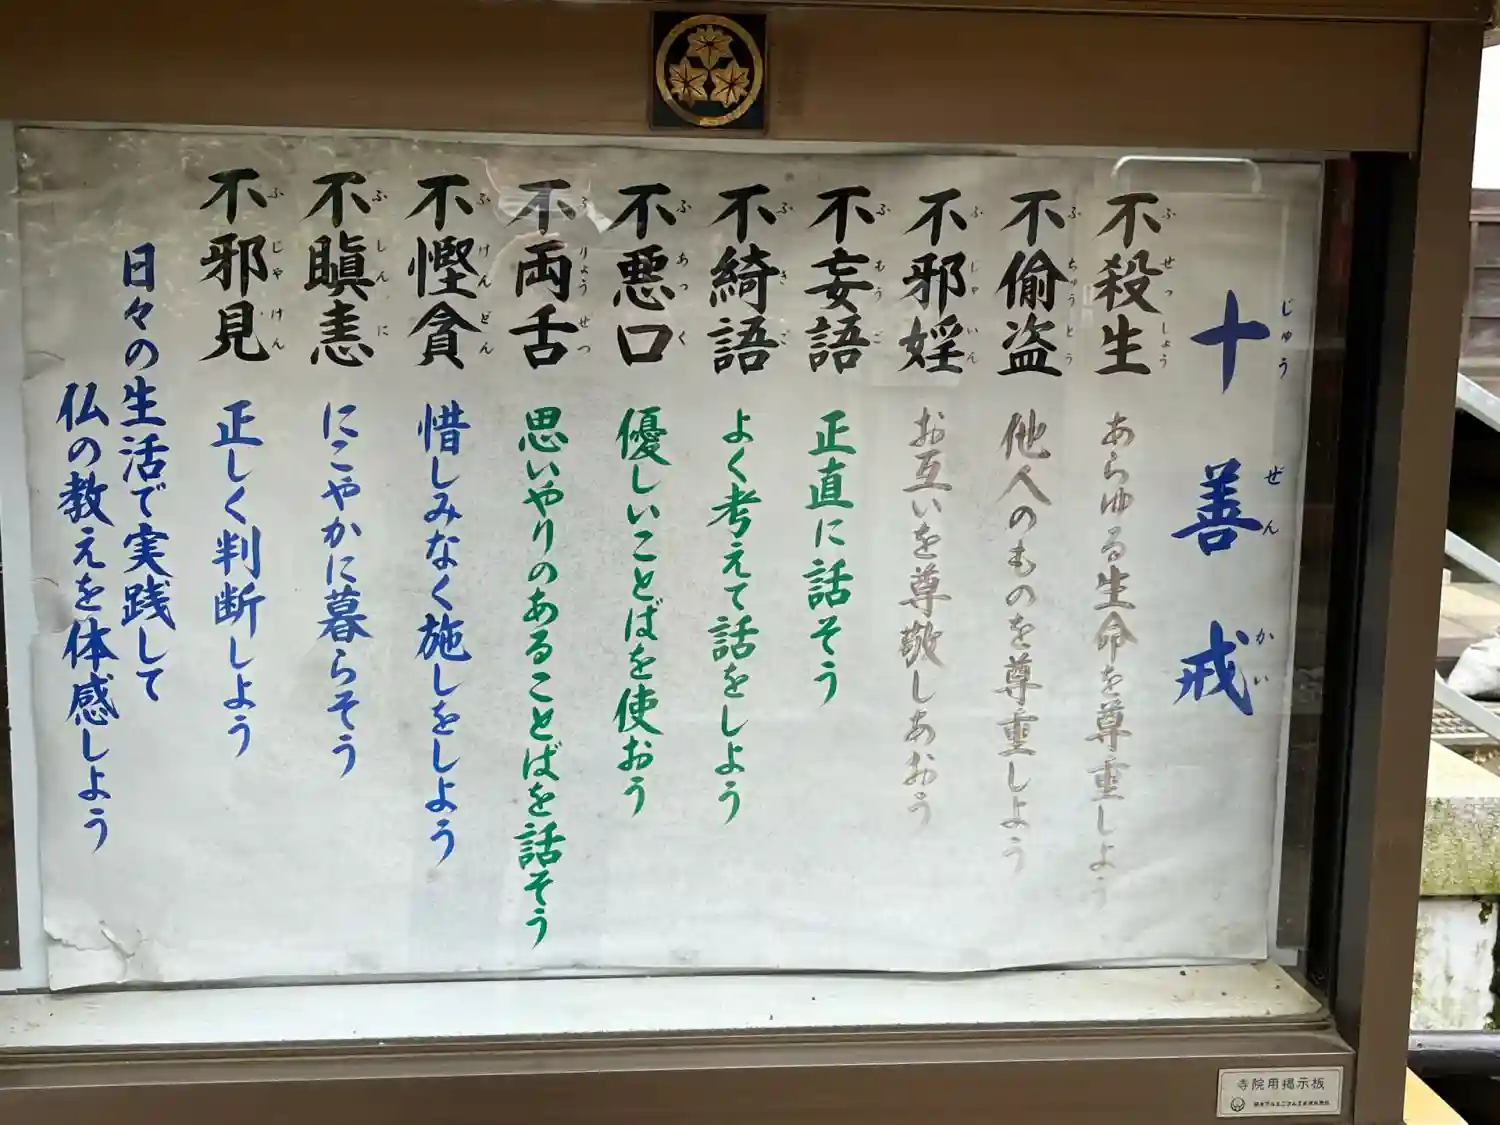 十善戒
じゅうぜんかい
不殺生
ふせっしょう
あらゆる生命を尊重しよう
不偸盗
ふちゅうとう
他人のものを尊重しよう
不邪婬
ふじゃいん
お互いを尊敬しあおう
不妄語
ふもうご
正直に話そう
不綺語
ふきご
よく考えて話をしよう
不悪口
ふあっく
優しいことばを使おう
不両舌
ふりょうぜつ
思いやりのあることばを話そう
不慳貪
ふけんどん
惜しみなく施しをしよう
不瞋恚
ふしんに
にこやかに暮らそう
不邪見
ふじゃけん
正しく判断しよう
日々の生活で実践して
仏の教えを体感しよう
寺院用掲示板